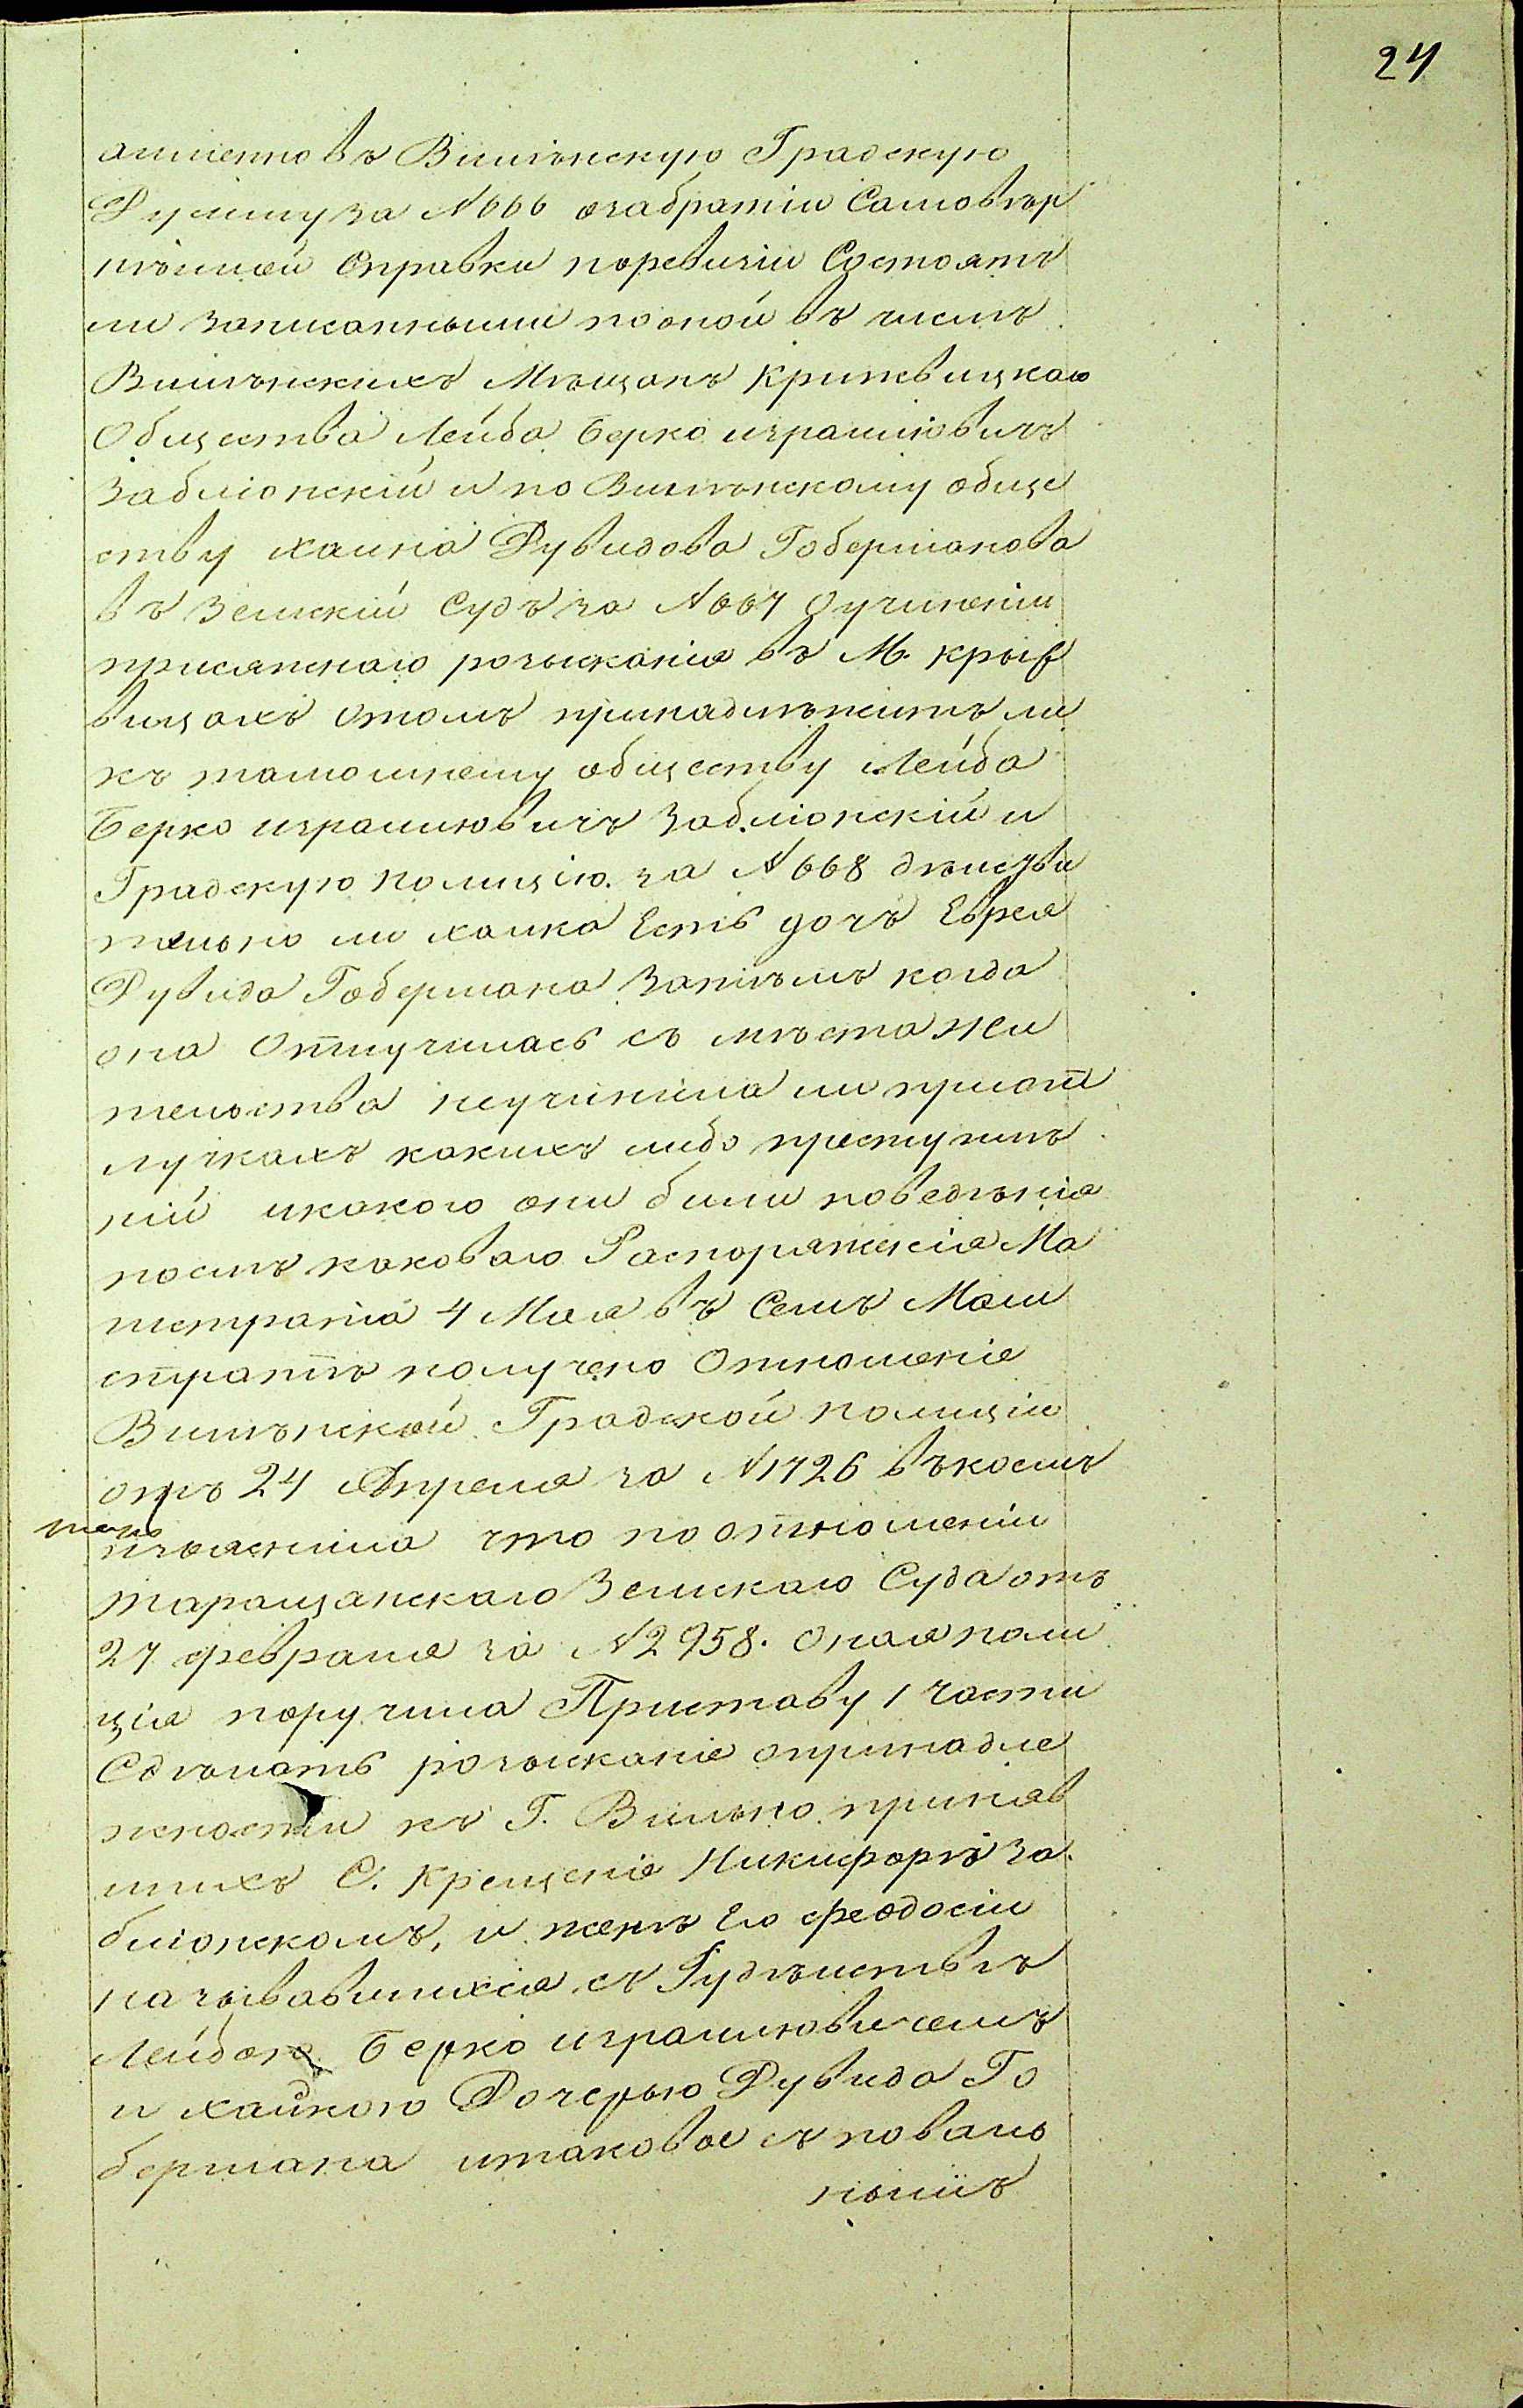 24
аименно въ Виленскую Градскую
Думму за №666 озабратіи Самовѣр
нѣишей Справки поревизіи Состоятъ
ли записанными поонои въ числѣ
Виленскихъ Мѣщанъ Кривицкаго
Общества Лейба Берко израилювичъ
Заблюнскій и по Виленскому обще
ству хаика Рувидова Гоберманова
въ Земскій Судъ за №667 Оучиненіи
присяжнаго розысканія въ М. крыв
вицахъ Отомъ принадлѣжитъ ли
къ тамошнему обществу Лейба
Берко израилювичъ Заблюнскій и
Градскую полицію за №668 дѣистви
тельно ли хаика Есть дочь Еврея
Рувида Гобермана Затѣмъ когда
она Отлучилась съ мѣста жи
тельства неучинила ли приот
лучкахъ какихъ либо преступлѣ
ній икакого они были поведѣнія
послѣ каковаго Распоряженія Ма
гистрата 4 Мая въ Семъ Маги
стратѣ получено Отношеніе
Виленской Градской полиціи
отъ 24 Апреля за №1726 въкоемъ
изъяснила что поотношеніи
таращанскаго Земскаго Суда отъ
27 февраля за №2958. Оная поли
ція поручила Приставу 1 части
Сдѣлать розысканіе опринадле
жности къ Г. Вильно приняв
шихъ С. Крещеніе Никифорѣ За
блюнскомъ, и женѣ Его феодосіи
называвшихся въ Іудѣиствѣ
Лейбою Берко израилювичемъ
и хаикою Дочерью Рувида Го
бермана итаковое съ поваль
нымъ